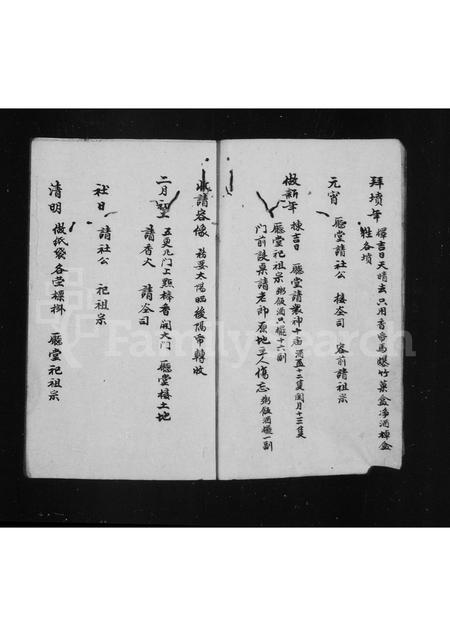 拜墳年 擇吉日天晴去只用香帋馬爆竹菓盒净酒棹盒
牲各墳
元宵 廳堂請社公 接灶司 容前請祖宗
做新年 揀吉日 廳堂請衆神十庙酒盃十二隻閏月十三隻
廳堂祀祖宗粥飯酒只櫳十六副
門前設菓請老郎原地亡人傷忘粥飯酒櫳一副
收請容像 務要太陽晒後隔帋轉收
二月 五更九门上點棒香開大门 廳堂接土地
請香火 請灶司
社日 請社公 祀祖宗
清明 做紙袋各塋標掛 廳堂祀祖宗
FamilySearch